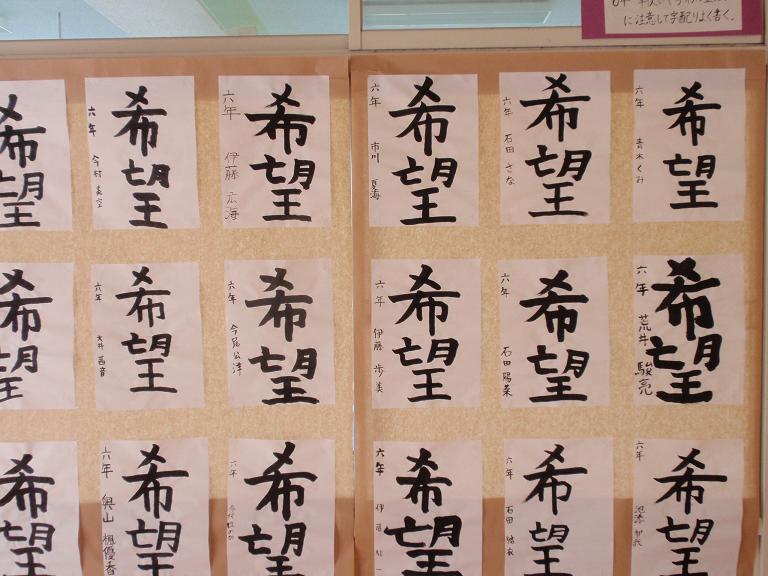 に注意して字配りよく書く。
希望
六年 青木くみ
希望
六年 石田さな
希望
六年 市川 夏海
希望
六年 伊藤 広海
希望
六年 今村 真空
希望
希望
六年 荒井 駿亮
希望
六年 石田陽菜
希望
六年 伊藤 歩美
希望
六年 今尾公洋
希望
六年 大井 茜音
希望
希望
六年
希望
六年 石田
希望
六年 伊藤
希望
六年
希望
六年 奥山 楓優香
希望